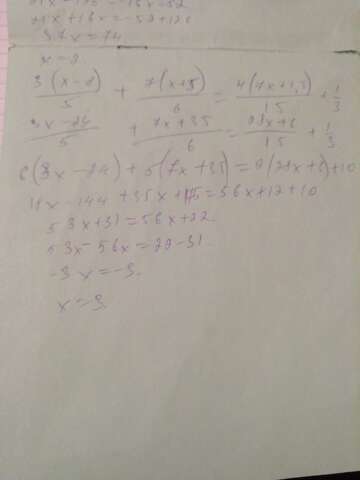 21x + 16x = -52 + 126
37x = 74
x = 2
3(x-8)/5 + 7(x+5)/6 = 4(7x+1,5)/15 + 1/3
3x-24/5 + 7x+35/6 = 28x+6/15 + 1/3
6(3x-24) + 5(7x+35) = 2(28x+6)+10
18x-144 + 35x + 175 = 56x+12+10
53x+31 = 56x+22
53x-56x = 22-31
-3x = -9
x = 3